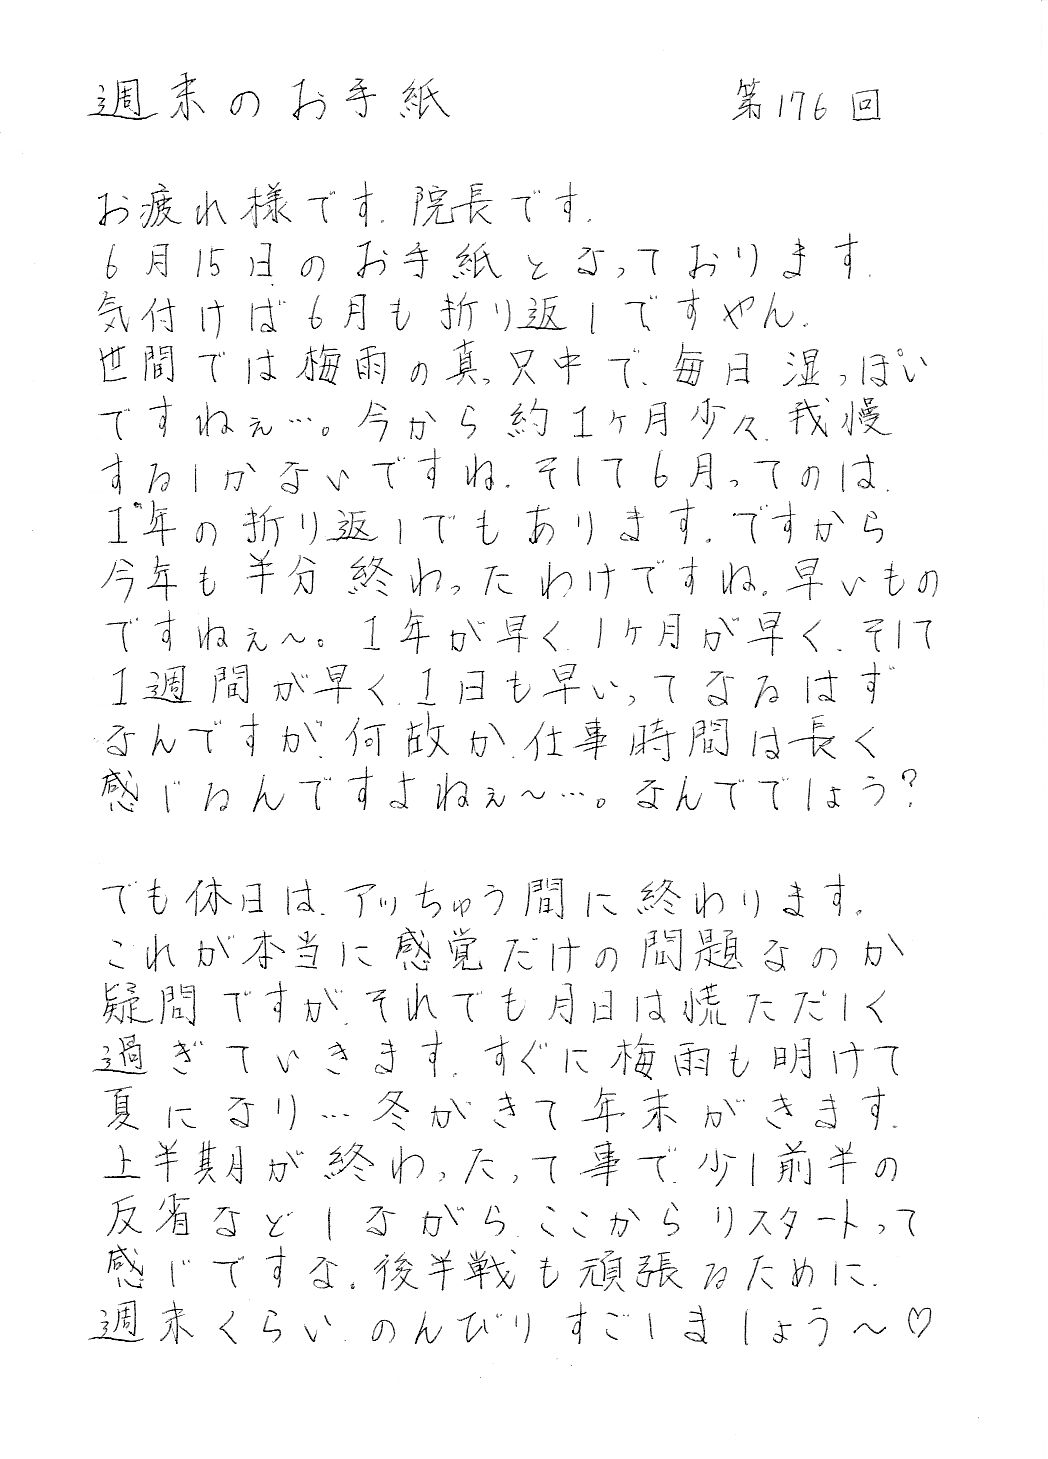 週末のお手紙 第176回
お疲れ様です。院長です。
6月15日のお手紙となっております。
気付けば6月も折り返しですやん。
世間では梅雨の真っ只中で、毎日湿っぽい
ですねぇ…。今から約1ヶ月少々、我慢
するしかないですね。そして6月ってのは、
1年の折り返しでもあります。ですから
今年も半分終わったわけですね。早いもの
ですねぇ〜。1年が早く、1ヶ月が早く、そして
1週間が早く、1日も早いってなるはず
なんですが、何故か、仕事時間は長く
感じるんですよねぇ〜…。なんででしょう?
でも休日は、アッちゅう間に終わります。
これが本当に感覚だけの問題なのか
疑問ですが、それでも月日は慌ただしく
過ぎていきます。すぐに梅雨も明けて
夏になり…冬がきて年末がきます。
上半期が終わったって事で、少し前半の
反省などしながら、ここからリスタートって
感じですな。後半戦も頑張るために、
週末くらい、のんびりすごしましょう〜♡